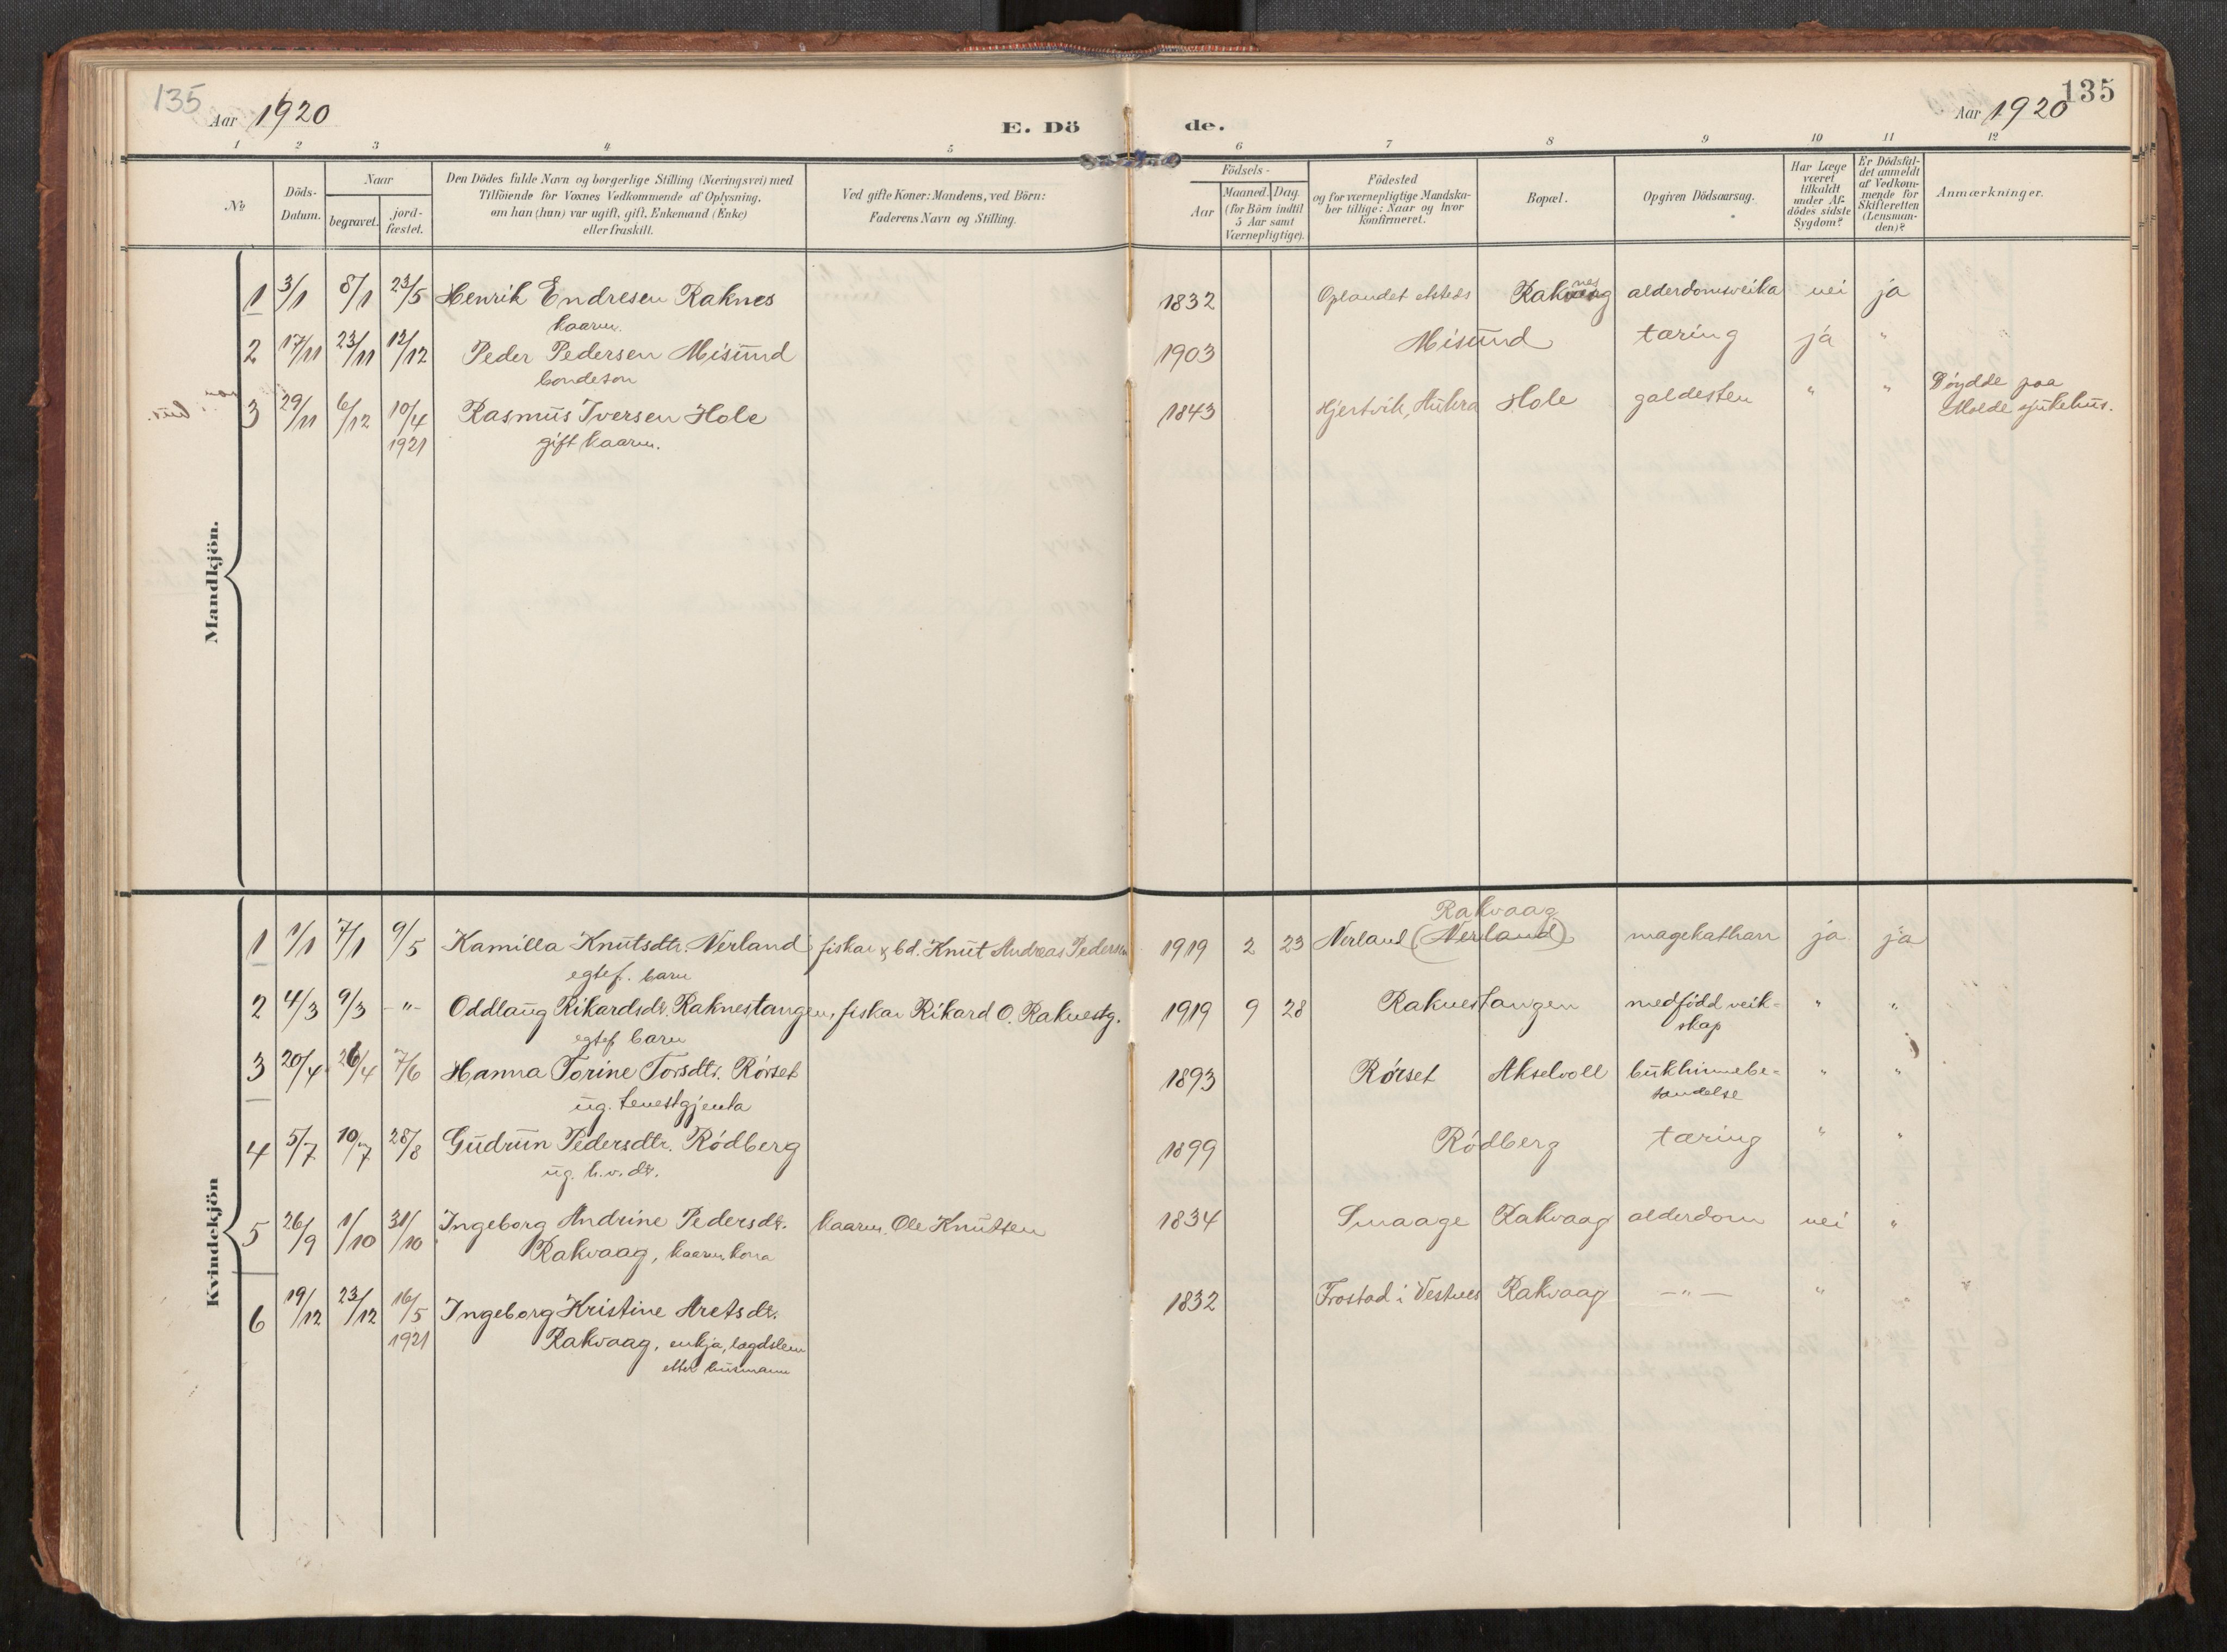 135
Aar 1920
E. Dö de.
Aar 1920
135
1 2 3 4 5 6 7 8 9 10 11 12
№
Döds-
Datum.
Naar
begravet.
jord-
fæstet.
Den Dödes fulde Navn og borgerlige Stilling (Næringsvei) med
Tilföiende for Voxnes Vedkommende af Oplysning,
om han (hun) var ugift, gift, Enkemand (Enke)
eller fraskilt.
Ved gifte Koner: Mandens, ved Börn:
Faderens Navn og Stilling.
Födsels-
Aar
Maaned. Dag.
(for Börn indtil
5 Aar samt
Værnepligtige).
Födested
og for værnepligtige Mandska-
ber tillige: Naar og hvor
konfirmeret.
Bopæl.
Opgiven Dödsaarsag.
Har Læge
været
tilkaldt
under Af-
dödes sidste
Sygdom?
Er Dödsfal-
det anmeldt
af Vedkom-
mende for
Skifteretten
(Lensman-
den)?
Anmærkninger.
Mandkjön.
1 3/1 8/1 23/5 Henrik Endresen Raknes 1832 Oplandet etsteds Raknes alderdomsveika nei ja
kaarm.
2 17/11 23/11 12/12 Peder Pedersen Misund 1903 Misund tæring ja "
bondeson
3 29/11 6/12 10/4 Rasmus Iversen Hole 1843 Hjertvik, Aukra Hole galdesten " " Döydde paa
1921 gift kaarm. Molde sjukehus.
Kvindekjön
Rakvaag
1 1/1 7/1 9/5 Kamilla Knutsdtr. Nerland fiskar & bd. Knut Andreas Pedersen 1919 2 23 Nerland (Nerland) magekatharr ja ja
egtef. barn
2 4/3 9/3 -"- Oddlaug Rikardsdr. Raknestangen, fiskar Rikard O. Raknestg. 1919 9 28 Raknestangen medfödd veik- " "
egtef barn skap
3 20/4 26/4 7/6 Hanna Torine Torsdtr. Rörset 1893 Rörset Akselvoll bukhinnebe- " "
ug. tenestgjenta tændelse
4 5/7 10/7 28/8 Gudrun Pedersdtr. Rödberg 1899 Rödberg tæring " "
ug. h.v. dr.
5 26/9 1/10 31/10 Ingeborg Andrine Pedersdr. kaarm. Ole Knutsen 1834 Smaage Rakvaag alderdom nei "
Rakvaag, kaarm.kona
6 19/12 23/12 16/5 Ingeborg Kristine Aretsdr. 1832 Frostad i Vestnes Rakvaag -"- " "
1921 Rakvaag, enkja, lægdslem
etter husmann